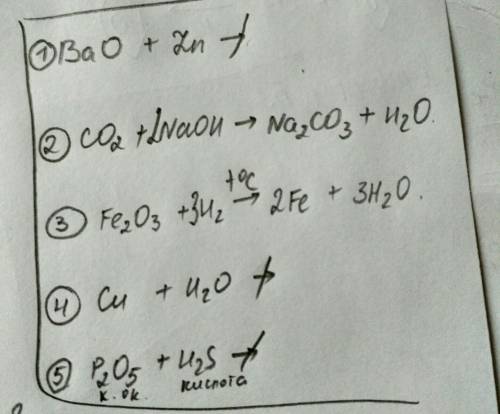 ① BaO + Zn ↛
② CO₂ + 2NaOH → Na₂CO₃ + H₂O.
t°C
③ Fe₂O₃ + 3H₂ → 2Fe + 3H₂O.
④ Cu + H₂O ↛
⑤ P₂O₅ + H₂S ↛
к. ок. кислота